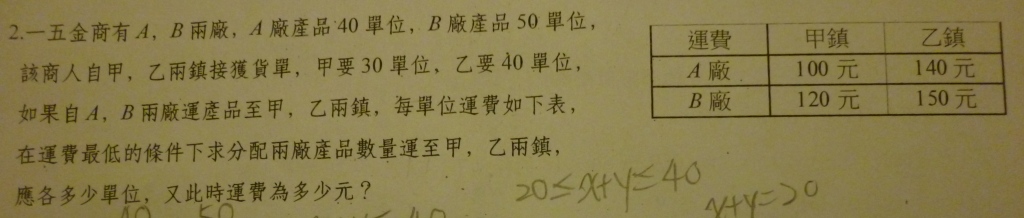 2.一五金商有A，B兩廠，A廠產品40單位，B廠產品50單位，
該商人自甲，乙兩鎮接獲貨單，甲要30單位，乙要40單位，
如果自A，B兩廠運產品至甲，乙兩鎮，每單位運費如下表，
在運費最低的條件下求分配兩廠產品數量運至甲，乙兩鎮，
應各多少單位，又此時運費為多少元？
運費 甲鎮 乙鎮
A廠 100元 140元
B廠 120元 150元
20≤x+y≤40
x+y=20